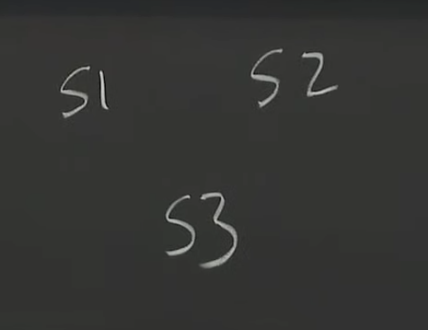 S1 S2
S3